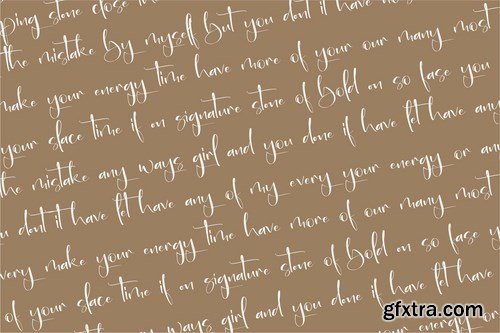 ping stone close
the mistake by myself but you dont it have
make your energy time have more of your our many most
your slace time if on signature stone of bold on so fase you
the mistake any ways girl and you done if have fet have any
u dont it have fet have any of my every your energy or any
very make your energy time have more of our many most
of your slace time if on signature stone of bold on so fase y
any ways girl and you done if have fet have
gfxtra.com